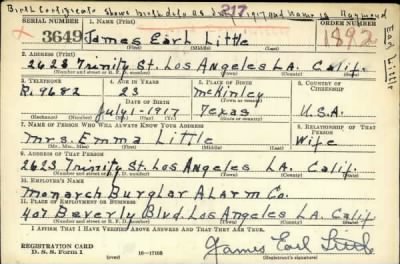 Birth Certificate shows birth date as July 1917 and name is Raymond
217
SERIAL NUMBER 1. NAME (Print) ORDER NUMBER
3649 James Earl Little 1892
(First) (Middle) (Last)
Earl Little
2. ADDRESS (Print)
2623 Trinity St. Los Angeles L.A. Calif.
(Number and street or R. F. D. number) (Town) (County) (State)
3. TELEPHONE 4. AGE IN YEARS 5. PLACE OF BIRTH 6. COUNTRY OF CITIZENSHIP
R. 9682 23 McKinley
DATE OF BIRTH (Town or county)
July 1-1917 Texas U.S.A.
(Exchange) (Number) (Mo.) (Day) (Yr.) (State or country)
7. NAME OF PERSON WHO WILL ALWAYS KNOW YOUR ADDRESS 8. RELATIONSHIP OF THAT PERSON
Mrs. Emma Little Wife
(Mr., Mrs., Miss) (First) (Middle) (Last)
9. ADDRESS OF THAT PERSON
2623 Trinity St. Los Angeles L.A. Calif.
(Number and street or R. F. D. number) (Town) (County) (State)
10. EMPLOYER'S NAME
Monarch Burglar Alarm Co.
11. PLACE OF EMPLOYMENT OR BUSINESS
401 Beverly Blvd. Los Angeles L.A. Calif
(Number and street or R. F. D. number) (Town) (County) (State)
I AFFIRM THAT I HAVE VERIFIED ABOVE ANSWERS AND THAT THEY ARE TRUE.
REGISTRATION CARD
D. S. S. Form 1 (over) 16-17105
James Earl Little
(Registrant's signature)